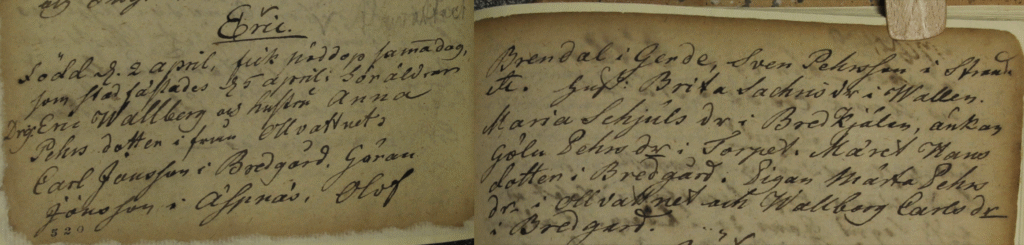 Eric.
Född d. 2 april, fick nöddop samma dag,
som stadfästades d. 5 april: Föräldrar
Drg: Eric Wallberg och hustru Anna
Pehrs dotter i från Ollvattnet:
Carl Jönsson i Bredgård. Göran
Jönsson i Äspnäs, Olof
520
Brendal i Gerde, Sven Pehrsson i Strand
Hust: Brita Sachris dr i Wallen.
Maria Schjuls dr i Bredkjälen, änkan
Gölu Pehrs dr i Torpet. Märet Hans
dotter i Bredgård. Pigan Märta Pehrs
dr i Ollvattnet och Wallborg Carls dr
i Bredgård.